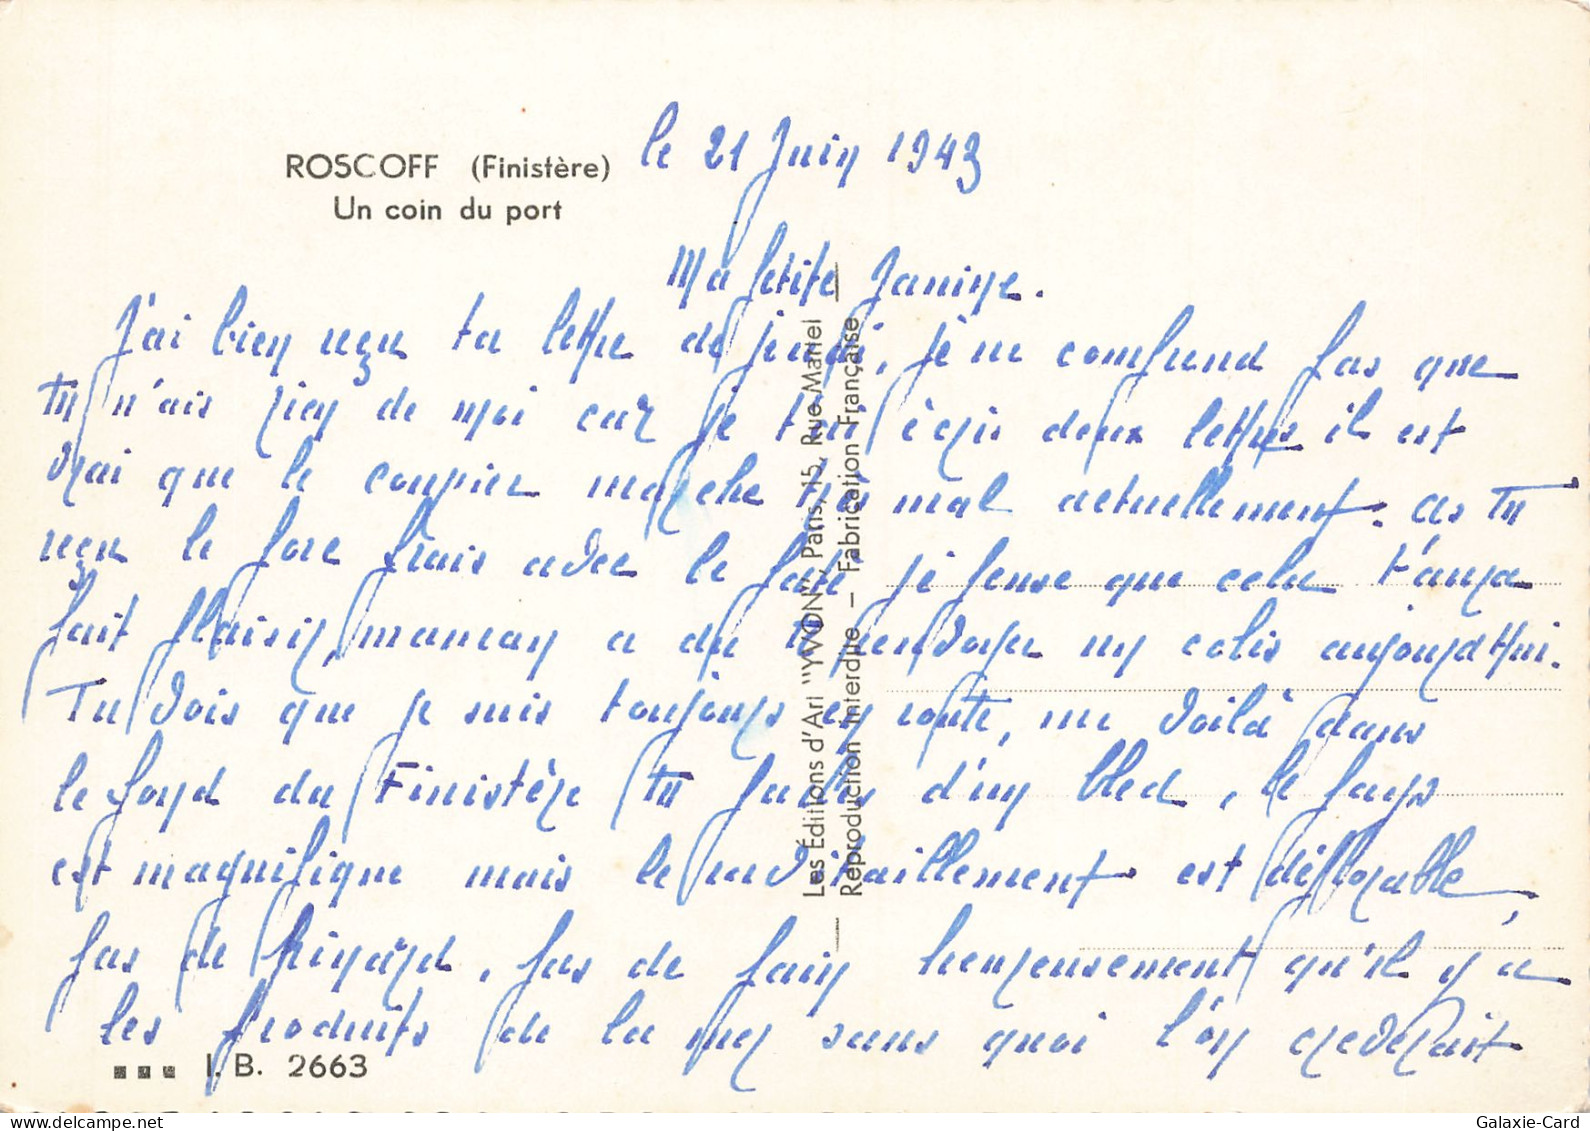 ROSCOFF (Finistère)
Un coin du port
le 21 Juin 1943
Ma petite Janine.
J'ai bien reçu ta lettre de jeudi, je ne comprend pas que
tu n'ais rien de moi car je t'ai écris deux lettres il est
vrai que le courrier marche très mal actuellement. as tu
reçu le porc frais avec le paté je pense que cela t'aura
fait plaisir, maman a du t'envoyer un colis aujourd'hui.
Tu vois que je suis toujours en route, me voilà dans
le fond du Finistère tu parles d'un bled, le pays
est magnifique mais le ravitaillement est déplorable,
pas de pinard, pas de pain heureusement qu'il y a
les produits de la mer sans quoi l'on creverait
I. B. 2663
Les Éditions d'Art "YVON", Paris, 15, Rue Martel
Reproduction Interdite — Fabrication Française
Galaxie-Card